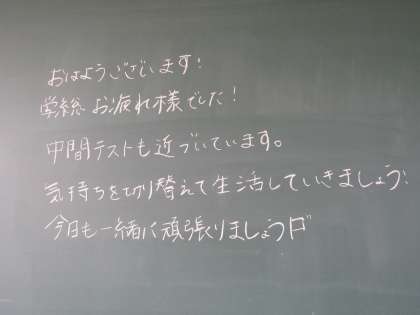 おはようございます!
学総 お疲れ様でした!
中間テストも近づいています。
気持ちを切り替えて生活していきましょう!
今日も一緒に頑張りましょう